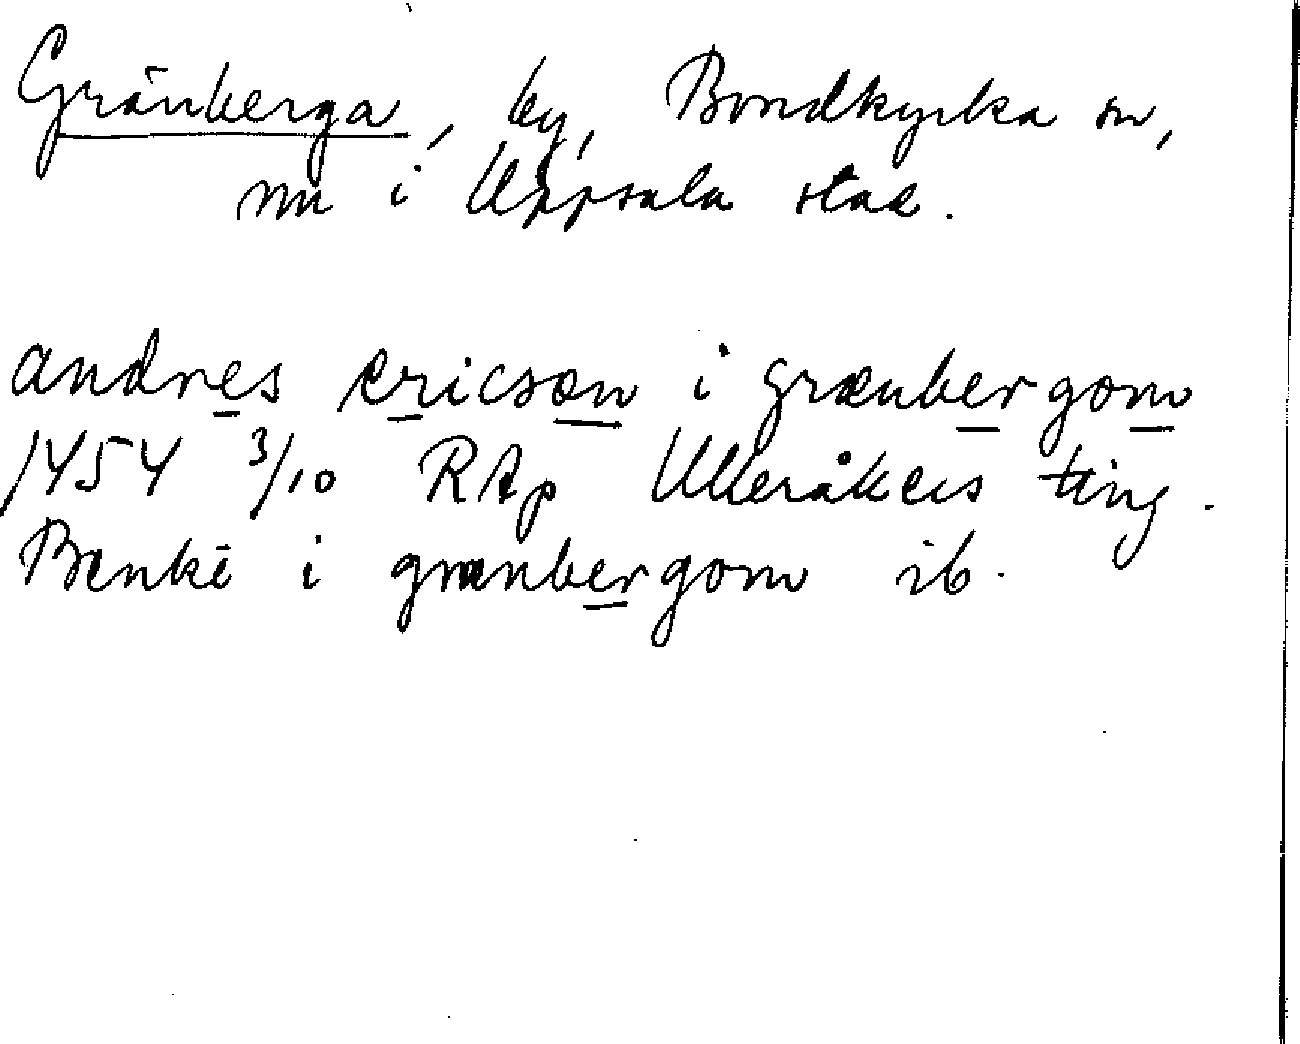 Gränberga, by, Bondkyrka sn,
nu i Uppsala stad.
andres ericson i grænbergom
1454 3/10 RAp Ulleråkers ting.
Benkt i grænbergom ib.